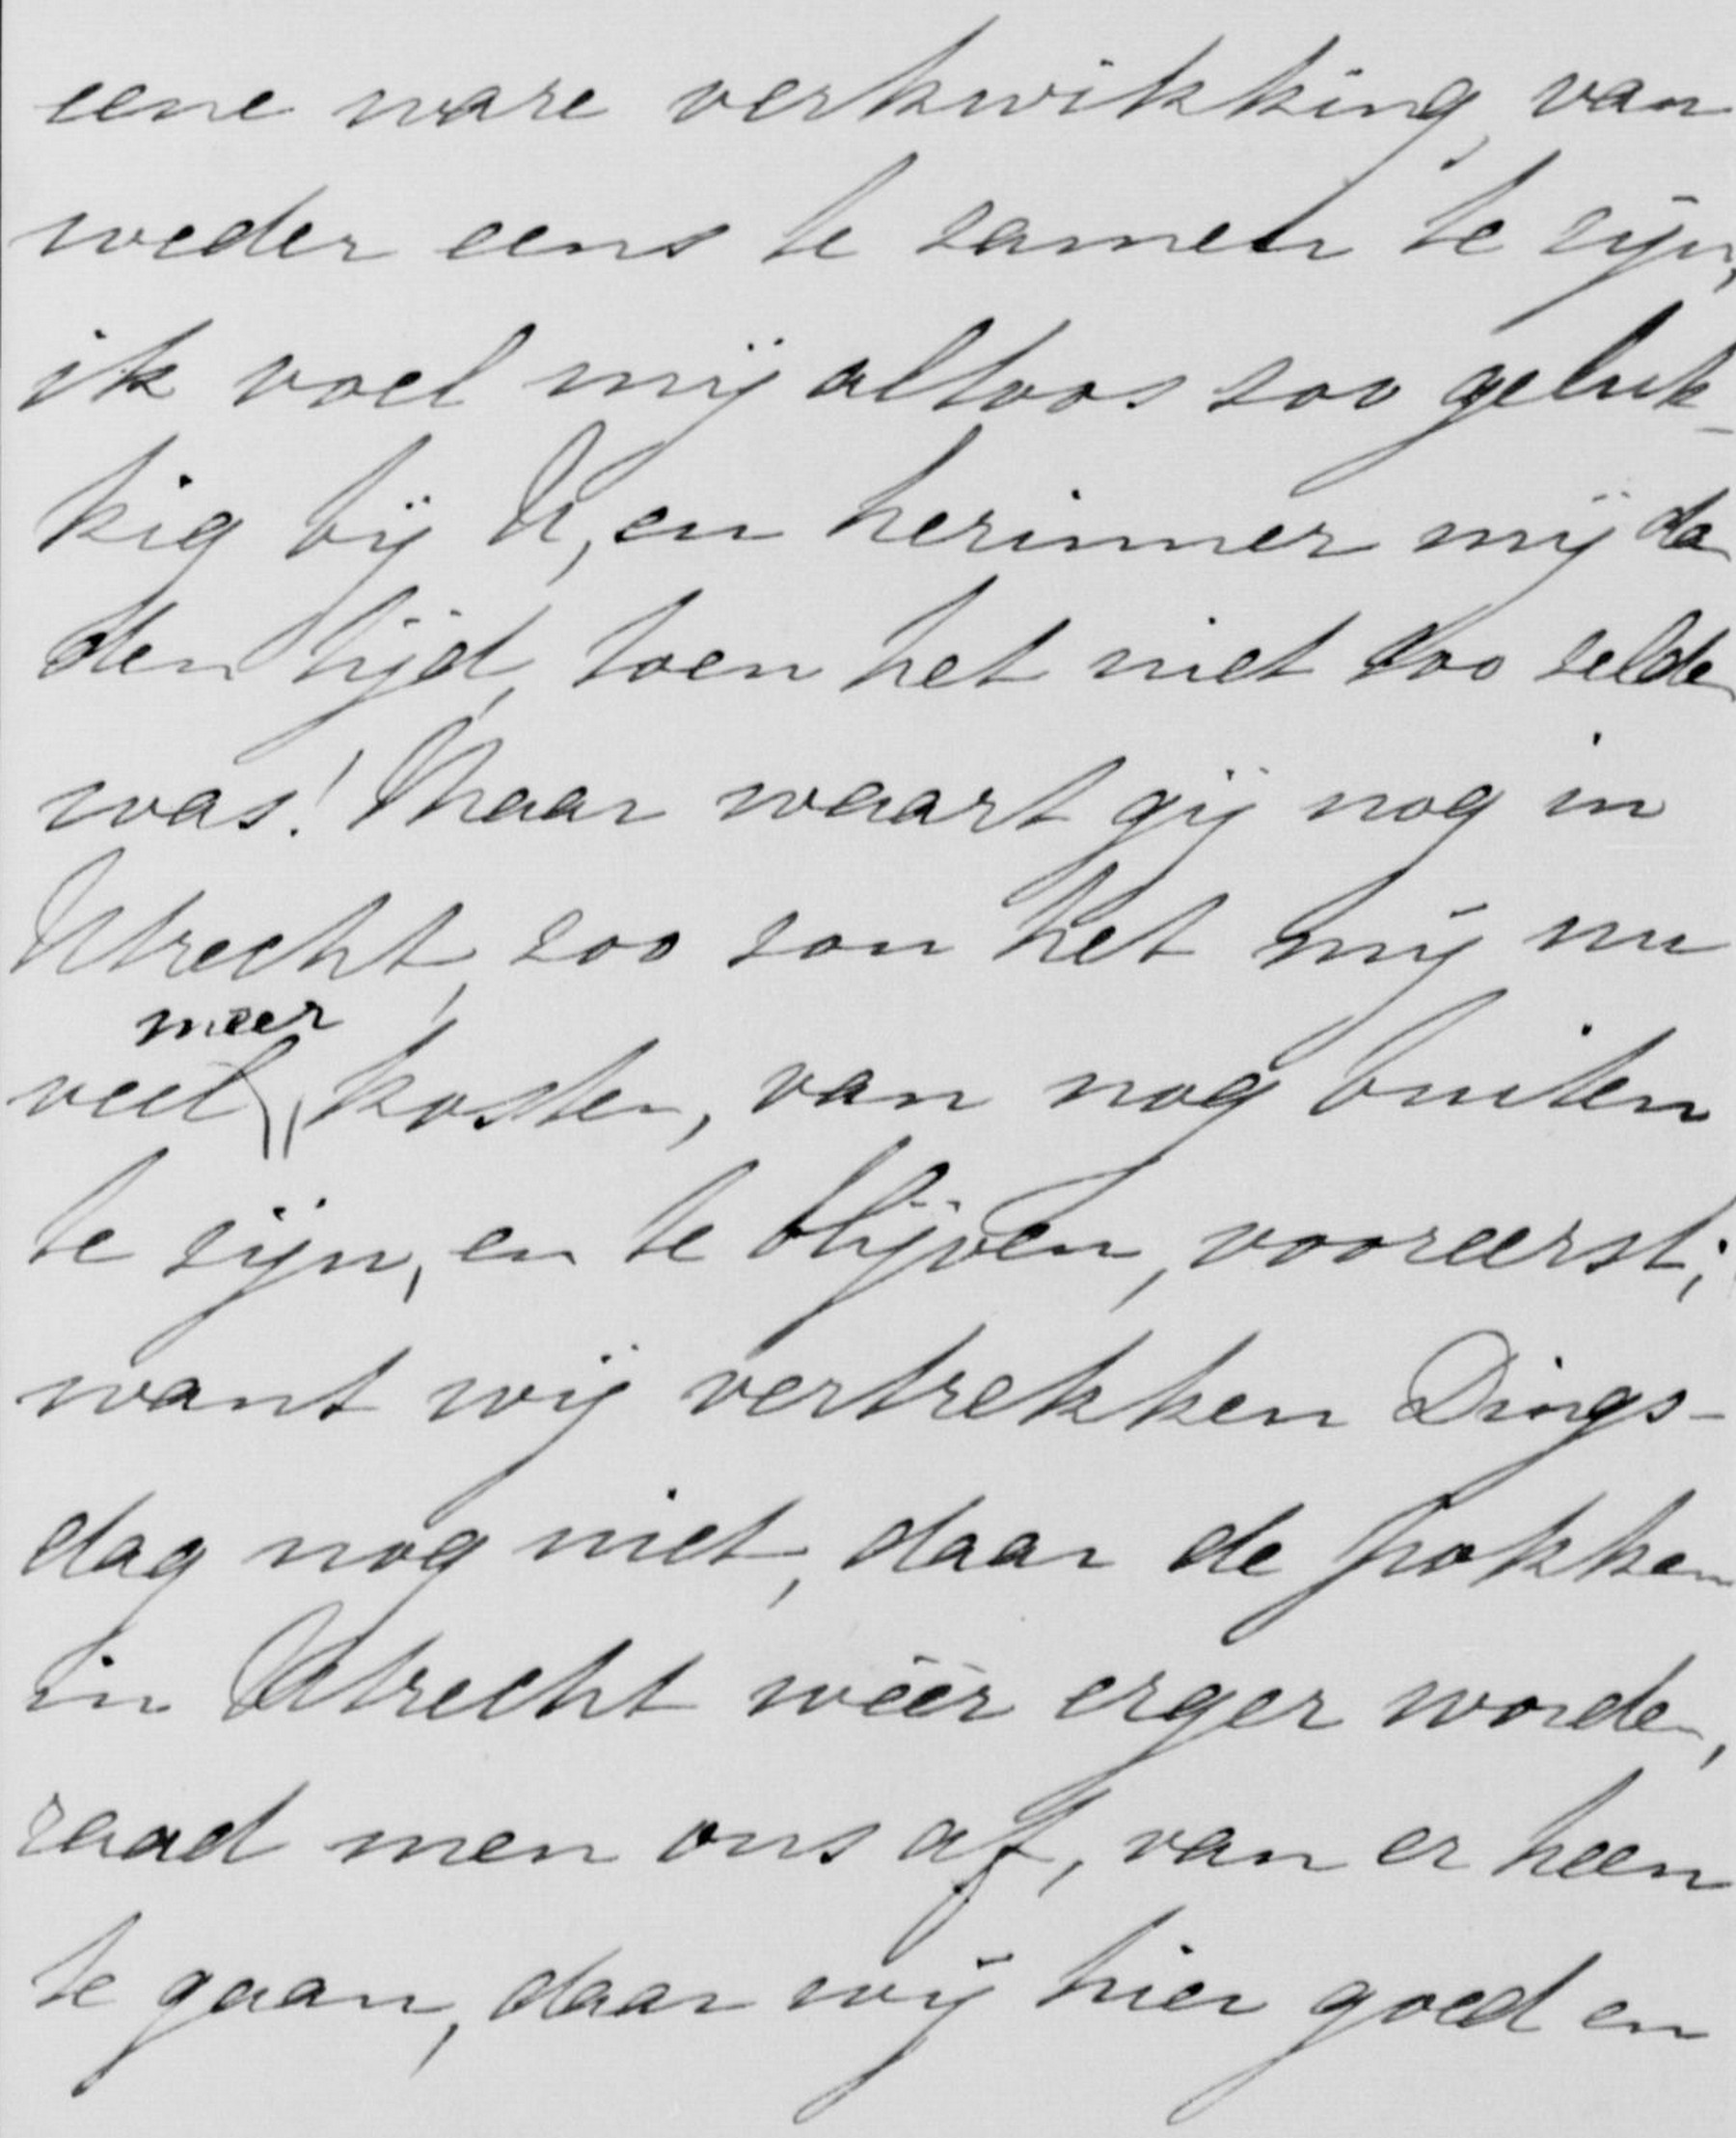 eene ware verkwikking, van
weder eens te samen te zijn,
ik voel mij altoos zoo geluk-
kig bij U, en herinner mij da
den tijd, toen het niet zoo zelde
was! Maar waart gij nog in
Utrecht, zoo zou het mij nu
meer
veel kosten, van nog buiten
te zijn, en te blijven, vooreerst;
want wij vertrekken Dings-
dag nog niet, daar de pokken
in Utrecht wéér erger worden,
raad men ons af, van er heen
te gaan, daar wij hier goed en